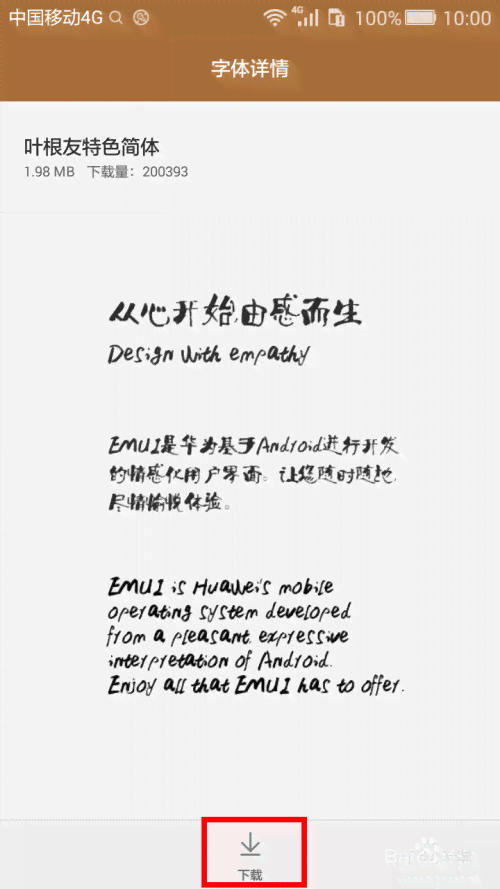 中国移动4G 4G 100% 10:00
字体详情
叶根友特色简体
1.98 MB 下载量：200393
从心开始,由感而生
Design with empathy
EMUI是华为基于Android进行开发
的情感化用户界面。让您随时随地,
尽情愉悦体验。
EMUI is Huawei's mobile
operating system developed
from a pleasant, expressive
interpretation of Android.
Enjoy all that EMUI has to offer.
下载